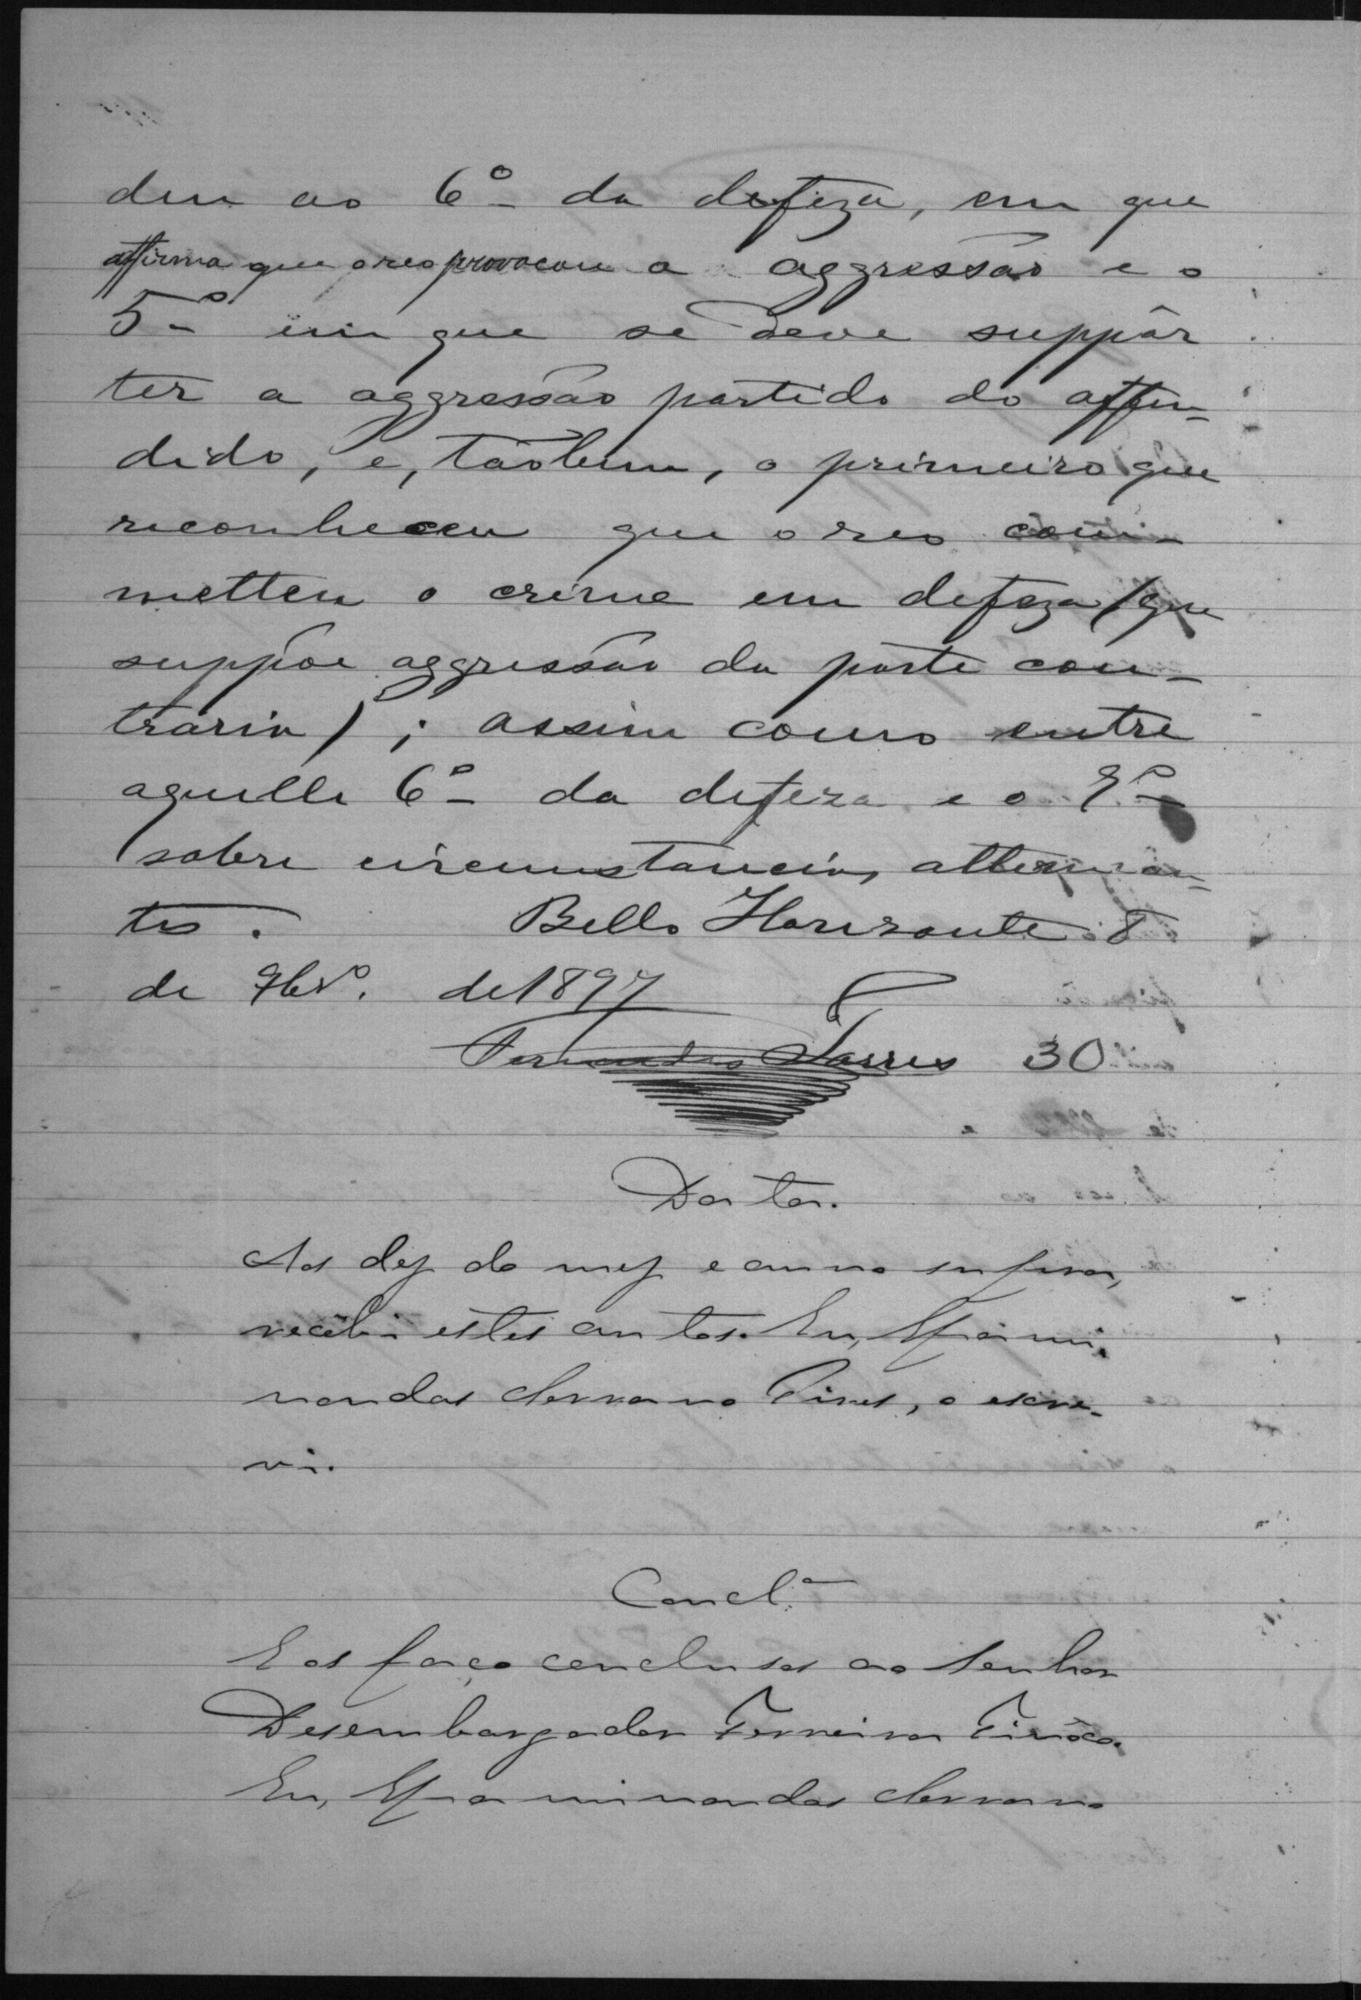 deu ao 6º da defeza, em que
affirma que o reo provocou a aggressão e o
5º em que se deve suppôr
ter a aggressão partido do offen-
dido, e, tãobem, o primeiro que
reconheceu que o reo com-
metteu o crime em defeza (que
suppõe aggressão da parte con-
traria); assim como entre
aquelle 6º da defeza e o
sobre circumstancias attenuan-
tes. Bello Horizonte 8
de 9bro. de 1897
Fernandes Torres 30
Data.
Aos dez do mez e anno supra,
recebi estes autos. Eu, Epami-
nondas Serrano Pires, o escre-
vi.
Concl.ᵃ
E os faço conclusos ao Senhor
Desembargador Ferreira Tinôco.
Eu, Epaminondas Serrano